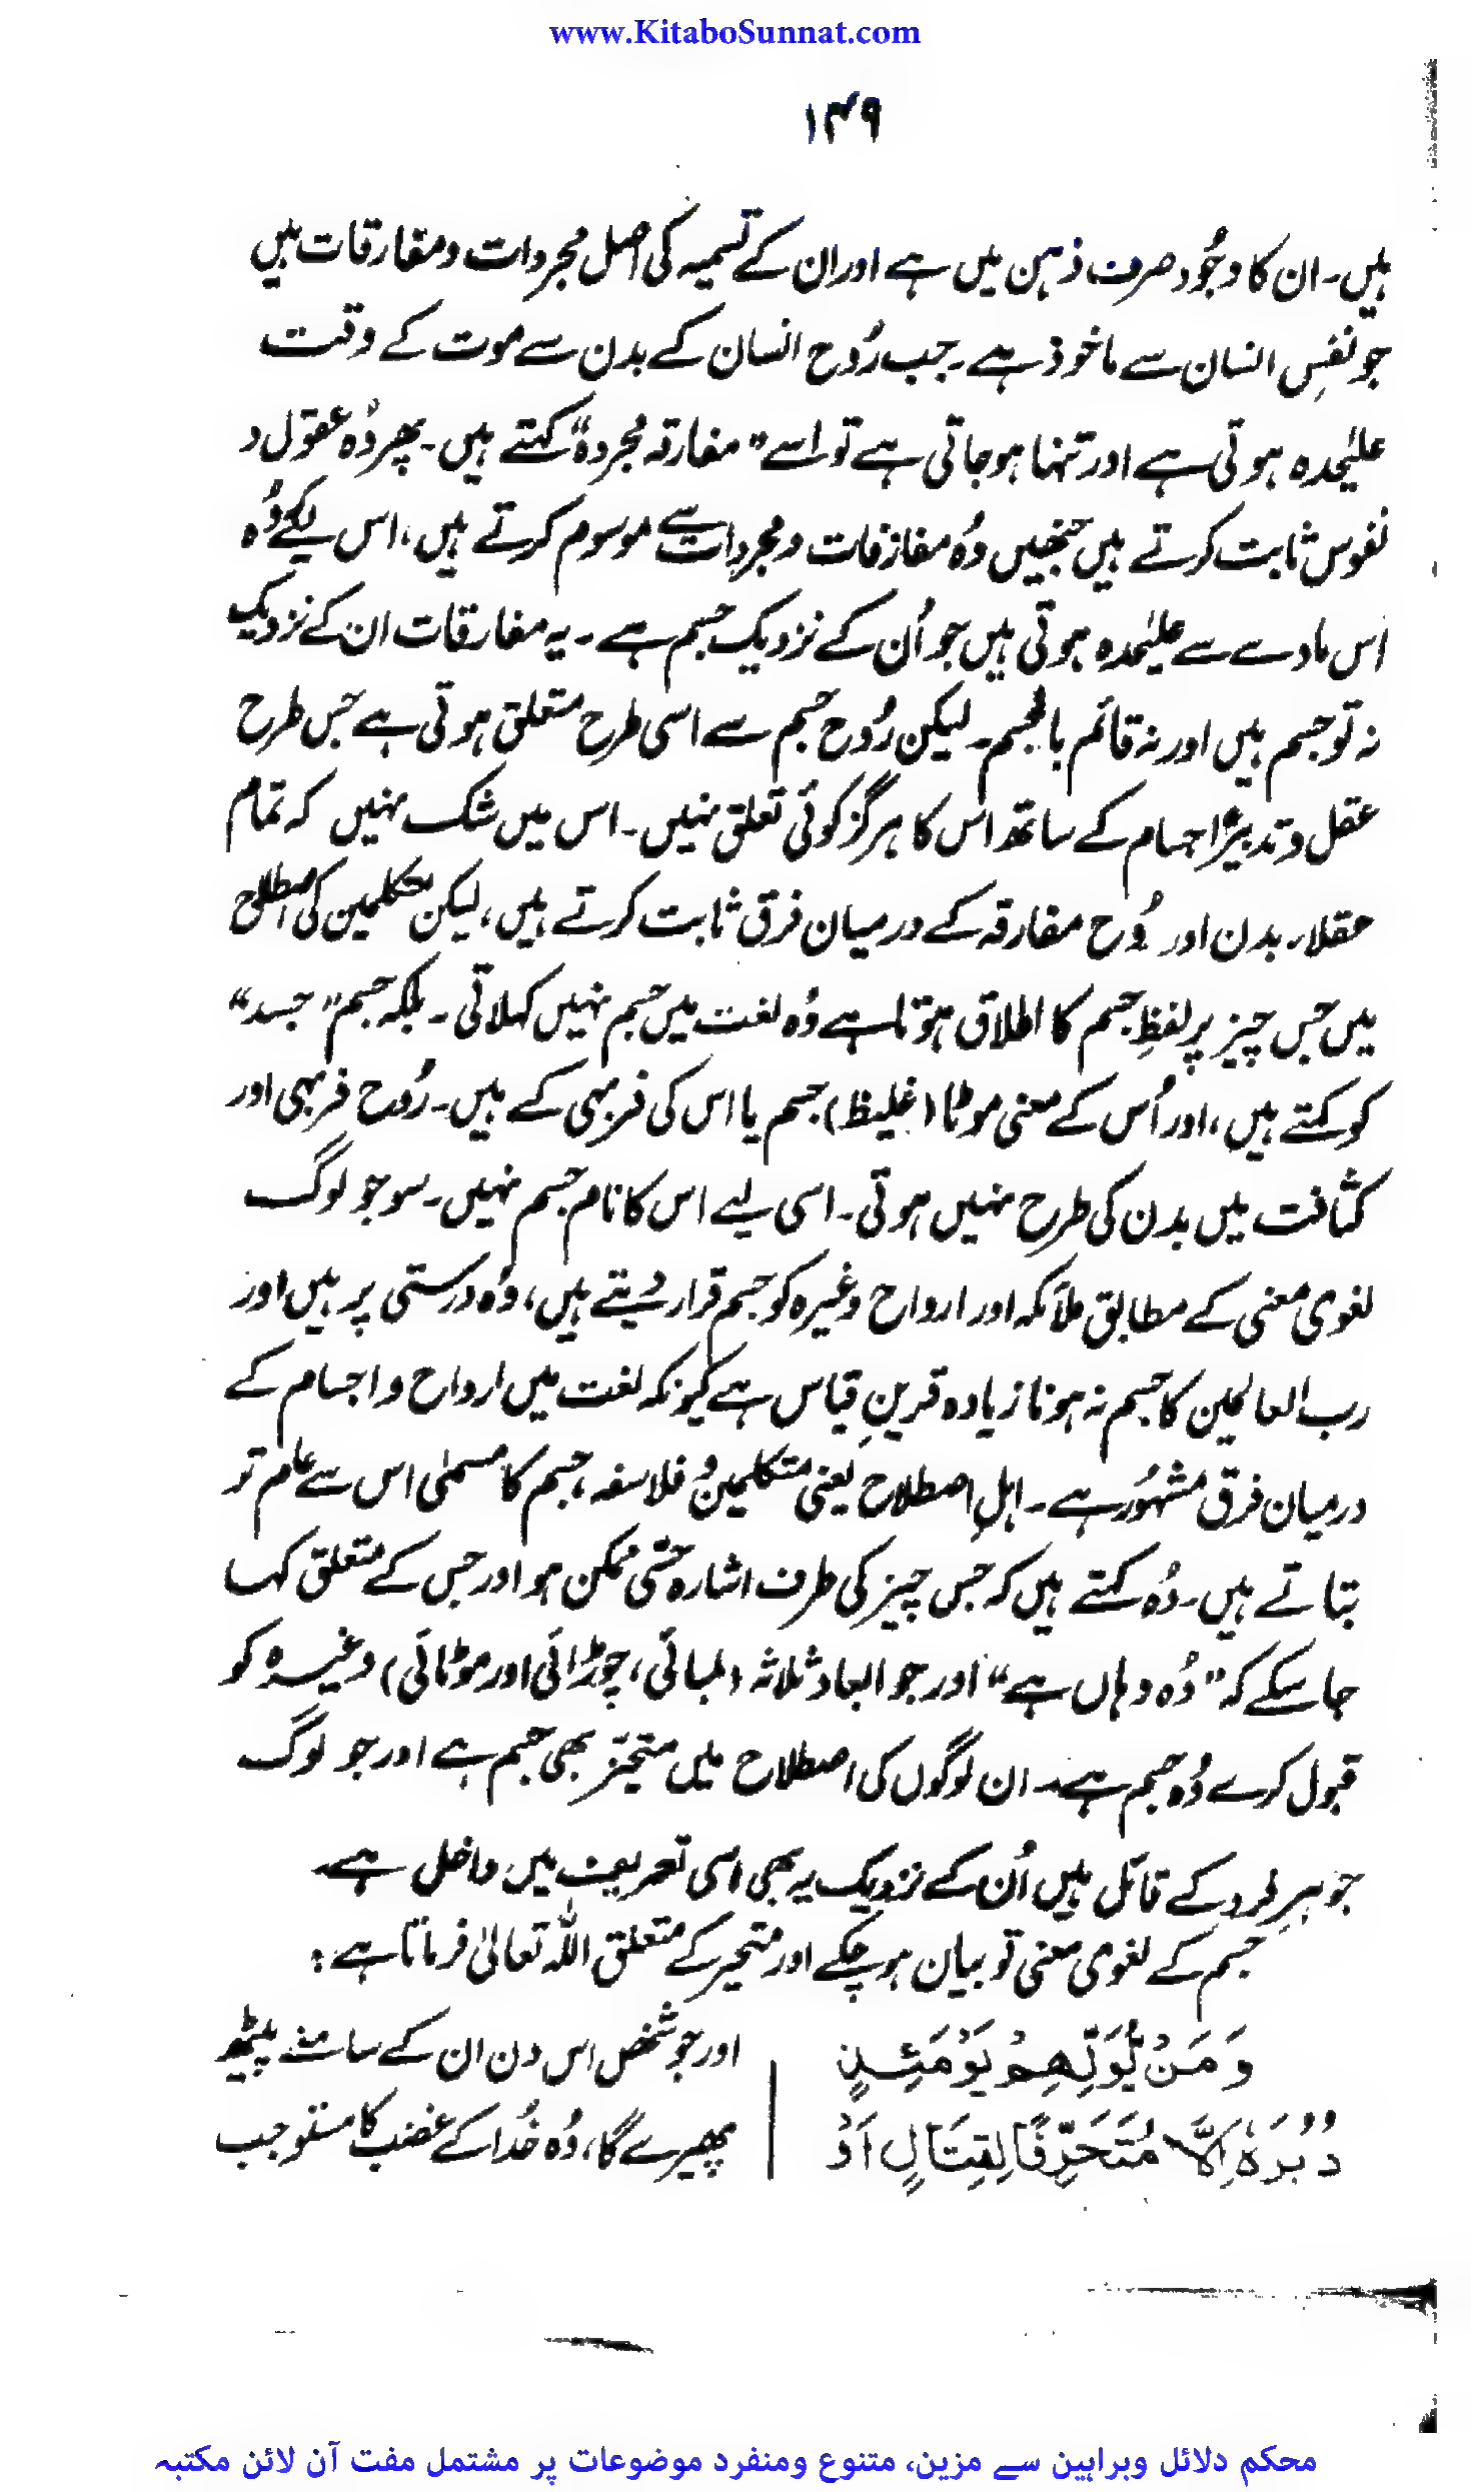 www.KitaboSunnat.com
۱۴۹
ہیں۔ ان کا وجُود صرف ذہن میں ہے اور ان کے تسمیہ کی اصل مجردات ومفارقات ہیں
جو نفسِ انسان سے ماخوذ ہے۔ جب رُوح انسان کے بدن سے موت کے وقت
علیٰحدہ ہوتی ہے اور تنہا ہو جاتی ہے تو اسے ”مفارقہ مجردہ“ کہتے ہیں۔ پھر وُہ عقول و
نفوس ثابت کرتے ہیں جنھیں وُہ مفارقات ومجردات سے موسوم کرتے ہیں، اس لیے کہ وُہ
اس مادے سے علیٰحدہ ہوتی ہیں جو اُن کے نزدیک جسم ہے۔ یہ مفارقات ان کے نزدیک
نہ تو جسم ہیں اور نہ قائم بالجسم۔ لیکن رُوح جسم سے اسی طرح متعلق ہوتی ہے جس طرح
عقل و تدبیر، اجسام کے ساتھ اس کا ہرگز کوئی تعلق نہیں۔ اس میں شک نہیں کہ تمام
عقلاء بدن اور رُوح مفارقہ کے درمیان فرق ثابت کرتے ہیں، لیکن متکلمین کی اصطلاح
میں جس چیز پر لفظِ جسم کا اطلاق ہوتا ہے وُہ لغت میں جسم نہیں کہلاتی۔ بلکہ جسم ”جسد“
کو کہتے ہیں، اور اُس کے معنی موٹا (غلیظ) جسم یا اس کی فربہی کے ہیں۔ رُوح فربہی اور
کثافت میں بدن کی طرح نہیں ہوتی۔ اسی لیے اس کا نام جسم نہیں۔ سو جو لوگ
لغوی معنی کے مطابق ملائکہ اور ارواح وغیرہ کو جسم قرار دیتے ہیں، وُہ درستی پر ہیں اور
رب العالمین کا جسم نہ ہونا زیادہ قرینِ قیاس ہے کیونکہ لغت میں ارواح و اجسام کے
درمیان فرق مشہُور ہے۔ اہلِ اصطلاح یعنی متکلمین و فلاسفہ، جسم کا مسمّٰی اس سے عام تر
بتاتے ہیں۔ وُہ کہتے ہیں کہ جس چیز کی طرف اشارہ حسّی ممکن ہو اور جس کے متعلق کہا
جا سکے کہ ”وُہ وہاں ہے“ اور جو ابعاد ثلاثہ (لمبائی، چوڑائی اور موٹائی) وغیرہ کو
قبول کرے وُہ جسم ہے۔ ان لوگوں کی اصطلاح میں متحیّز بھی جسم ہے اور جو لوگ
جوہرِ فرد کے قائل ہیں اُن کے نزدیک یہ بھی اسی تعریف میں داخل ہے۔
جسم کے لغوی معنی تو بیان ہو چکے اور متحیز کے متعلق اللہ تعالیٰ فرماتا ہے:
وَ مَنْ یُّوَلِّهِمْ یَوْمَئِذٍ
دُبُرَهٗ اِلَّا مُتَحَرِّفًا لِقِتَالٍ اَوْ
اور جو شخص اس دن ان کے سامنے پیٹھ
پھیرے گا، وُہ خُدا کے غضب کا مستوجب
محکم دلائل وبراہین سے مزین، متنوع ومنفرد موضوعات پر مشتمل مفت آن لائن مکتبہ